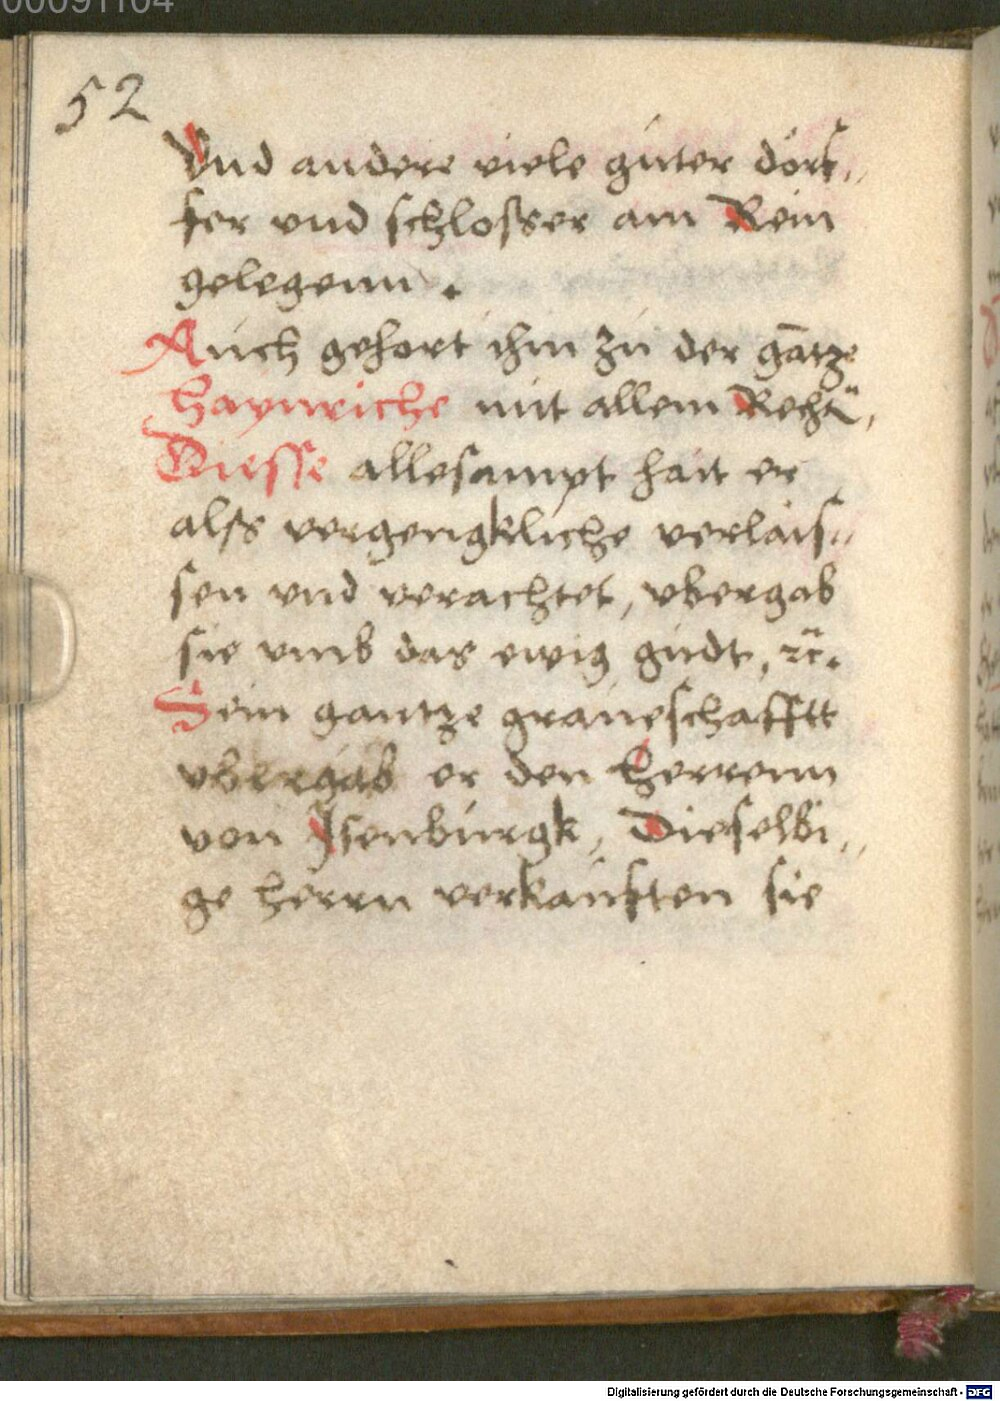 00091104
52
Vnd andere viele guter dorf„
fer vnd schlosser am Rein
gelegenn .
Auch gehort ihm zu der gātze
Haynriche mit allem Recht
Diesse allesampt hait er
alss vergengkliche verlais„
sen vnd verachtet, vbergab
sie vmb das ewig gudt, ꝛc̈.
Sein gantze graueschafftt
vbergab er den Herrenn
von Isenburgk, Dieselbi„
ge herrn verkaufften sie
Digitalisierung gefördert durch die Deutsche Forschungsgemeinschaft - DFG